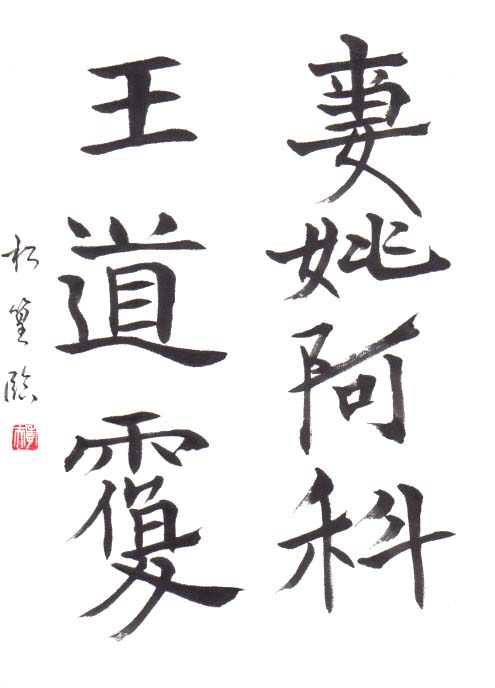 妻姚阿科
王道覆
松篁臨